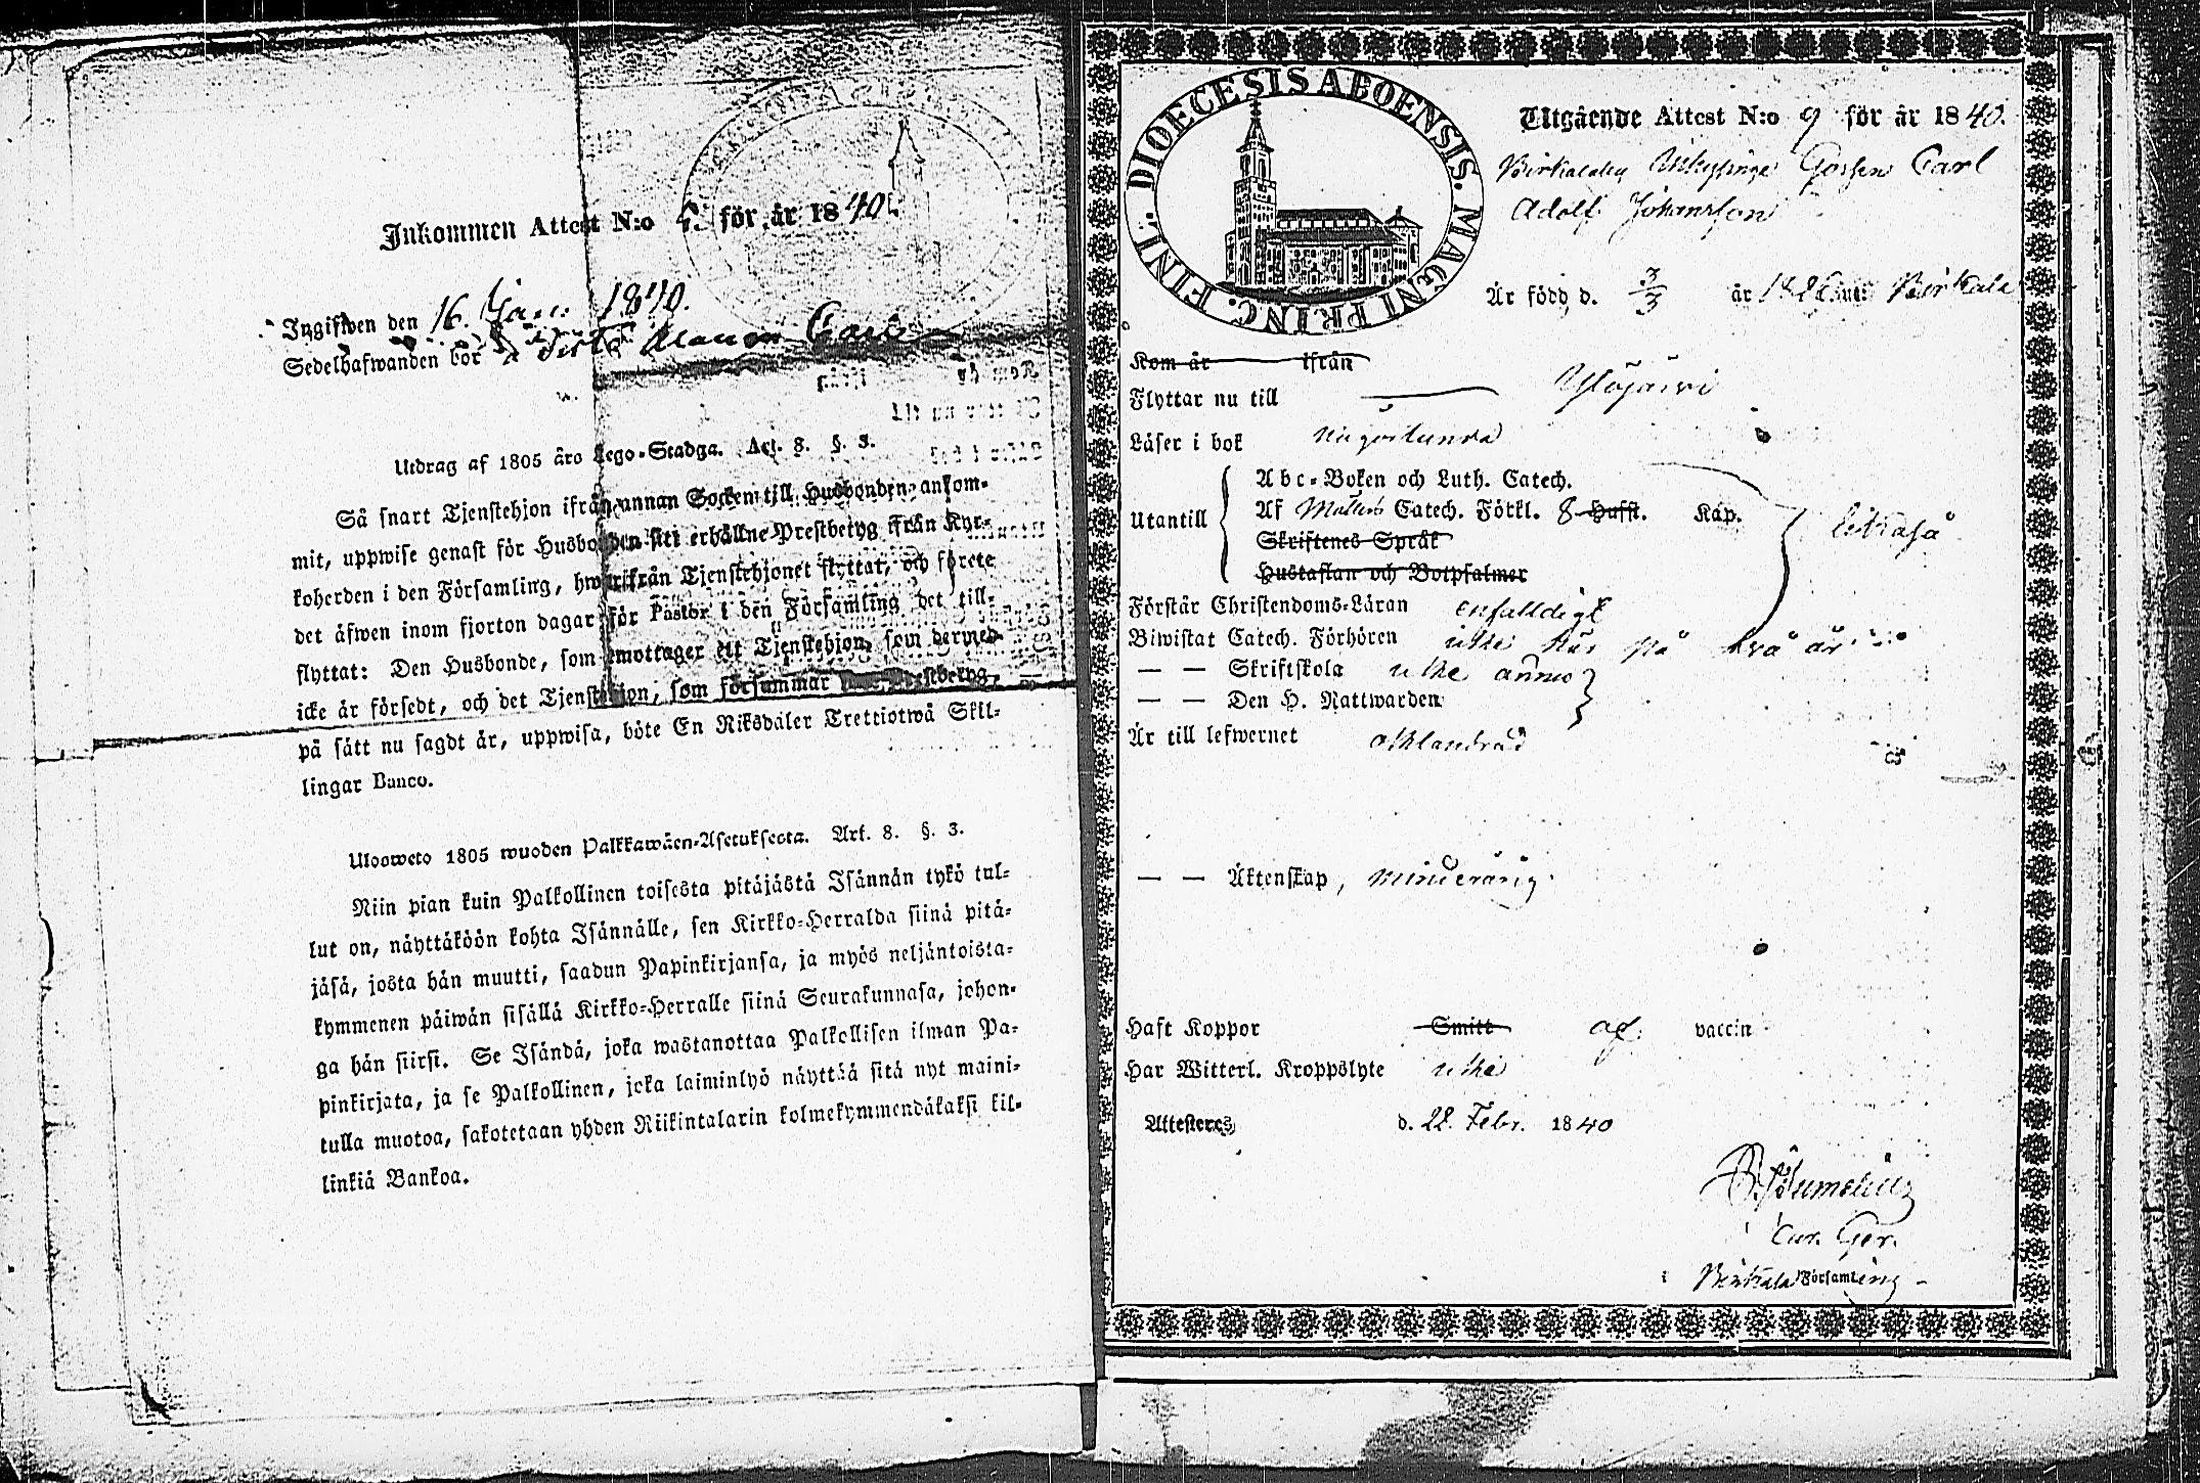 Inkommen Attest N:o för år 1840.
Ingifwen den 16. Jan. 1840.
Sedelhafwanden bor
Utdrag af 1805 års Lego-Stadga. Art. 8. §. 3.
Så snart Tjenstehjon ifrån annan Socken till Husbonden ankom-
mit, uppwise genast för Husbonden sitt erhållne Prestbetyg ifrån Kyr-
koherden i den Församling, hwarifrån Tjenstehjonet flyttat, och förete
det äfwen inom fjorton dagar för Pastor i den Församling det till-
flyttat: Den Husbonde, som emottager ett Tjenstehjon, som dermed
icke är försedt, och det Tjenstehjon, som försummar Prestbetyg,
på sätt nu sagdt är, uppwisa, böte En Riksdaler Trettiotwå Skil-
lingar Banco.
Ulosweto 1805 wuoden Palkkawäen-Asetuksesta. Art. 8. §. 3.
Niin pian kuin Palkollinen toisesta pitäjästä Isännän tykö tul-
lut on, näyttäköön kohta Isännälle, sen Kirkko-Herralda siinä pitä-
jäsä, josta hän muutti, saadun Papinkirjansa, ja myös neljäntoista-
kymmenen päiwän sisällä Kirkko-Herralle siinä Seurakunnasa, johon-
ga hän siirsi. Se Isändä, joka wastanottaa Palkollisen ilman Pa-
pinkirjata, ja se Palkollinen, joka laiminlyö näyttää sitä nyt maini-
tulla muotoa, sakotetaan yhden Riikintalarin kolmekymmendäkaksi kil-
linkiä Bankoa.
DIOECESIS ABOENSIS. MAGNI PRINC. FINL.
Utgående Attest N:o 9 för år 1840.
Gossen Carl
Adolf Johansson
Är född d. 3/3 år i Birkala
Kom år ifrån
Flyttar nu till Ylöjärvi
Läser i bok
Utantill
Abc-Boken och Luth. Catech.
Af Catech. Förkl. 8 Hufst. Kap.
Skriftenes Språk
Hustaflan och Botpsalmer
Förstår Christendoms-Läran enfalldigt
Biwistat Catech. Förhören icke här på två år
— — Skriftskola icke ännu
— — Den H. Nattwarden
Är till lefwernet oklandrad
— — Äktenskap, minderårig.
Haft Koppor Smitt af vaccin
Har Witterl. Kroppslyte icke
Attesteres d. 22. Febr. 1840
Cur. Ger.
i Birkala Församling